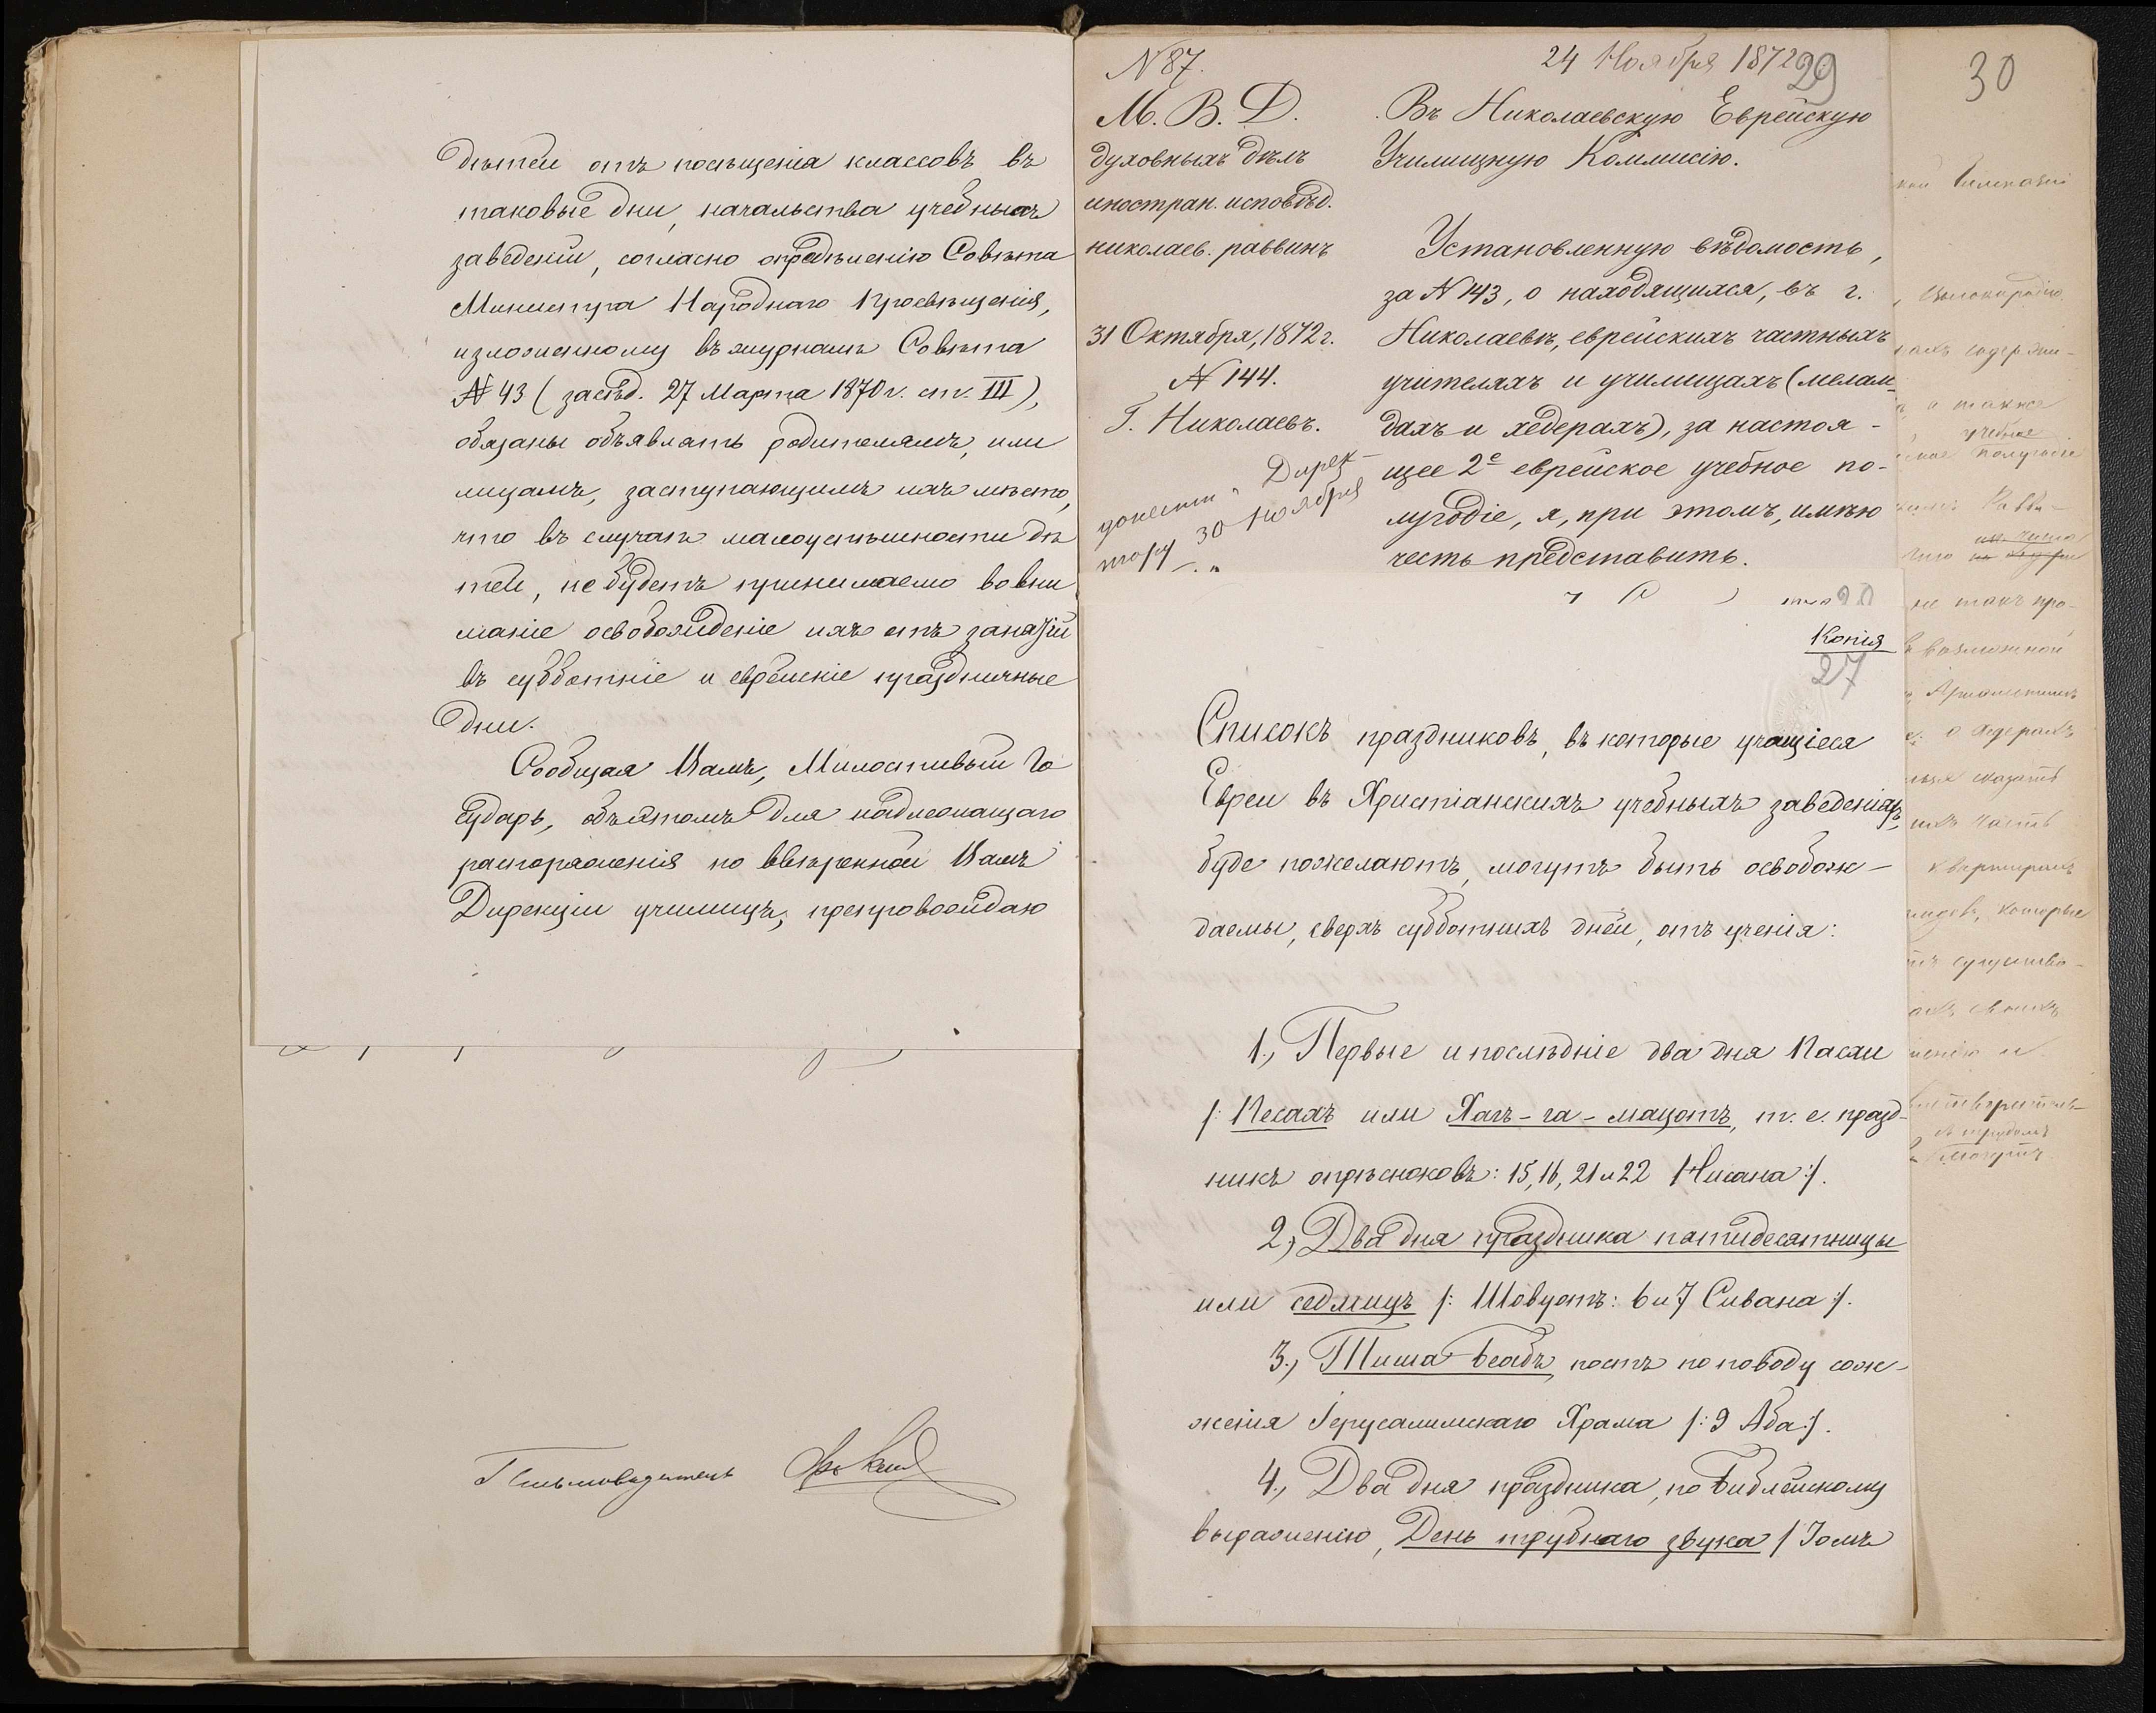 дѣтей отъ посѣщенія классовъ въ
таковые дни, начальства учебныхъ
заведеній, согласно опредѣленію Совѣта
Министра Народнаго Просвѣщенія,
изложенному въ журналѣ Совѣта
№ 43 (засѣд. 27 Марта 1870 г. ст. III),
обязаны объявлять родителямъ, или
лицамъ, заступающимъ ихъ мѣсто,
что въ случаѣ малоуспѣшности дѣ
тей, не будетъ принимаемо во вни
маніе освобожденіе ихъ отъ занятій
въ субботніе и еврейскіе праздничные
дни.
Сообщая Вамъ, Милостивый Го
сударь, объ этомъ для надлежащаго
распоряженія по ввѣренной Вамъ
Дирекціи училищъ, препровождаю
Письмоводитель
№ 87.
24 Ноября 1872
29
М. В. Д.
духовныхъ дѣлъ
иностран. исповѣд.
николаев. раввинъ
31 Октября, 1872 г.
№ 144.
Г. Николаевъ.
донести Дирек-
тору 30 Ноября
Въ Николаевскую Еврейскую
Училищную Коммисію.
Установленную вѣдомость,
за № 143, о находящихся, въ г.
Николаевѣ, еврейскихъ частныхъ
учителяхъ и училищахъ (мелам-
дахъ и хедерахъ), за настоя-
щее 2е еврейское учебное по-
лугодіе, я, при этомъ, имѣю
честь представить.
Копія
27
Списокъ праздниковъ, въ которые учащіеся
Евреи въ Христіанскихъ учебныхъ заведеніяхъ,
буде пожелаютъ, могутъ быть освобож-
даемы, сверхъ субботнихъ дней, отъ ученія:
1., Первые и послѣдніе два дня Пасхи
/: Песахъ или Хагъ-га-мацотъ, т. е. празд-
никъ опрѣсноковъ: 15, 16, 21 и 22 Нисана :/.
2., Два дня праздника пятидесятницы
или седмицъ /: Шовуотъ: 6 и 7 Сивана :/.
3., Тиша-беабъ, постъ по поводу сож-
женія Іерусалимскаго Храма /: 9 Аба :/.
4., Два дня праздника, по библейскому
выраженію, День трубнаго звука / Іомъ
30
а также
учебное
полугодіе
не такъ про-
возможной
сказать
часть
которые